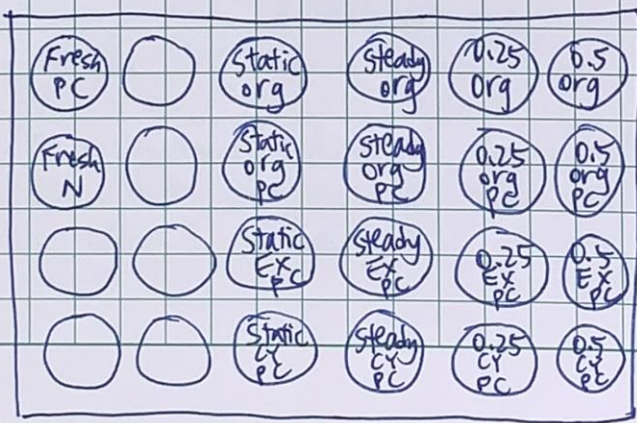 Fresh PC
Static org
Steady org
0.25 Org
0.5 org
Fresh N
Static org PC
Steady org PC
0.25 org PC
0.5 org PC
Static EX PC
Steady EX PC
0.25 EX PC
0.5 EX PC
Static CY PC
Steady CY PC
0.25 CY PC
0.5 CY PC